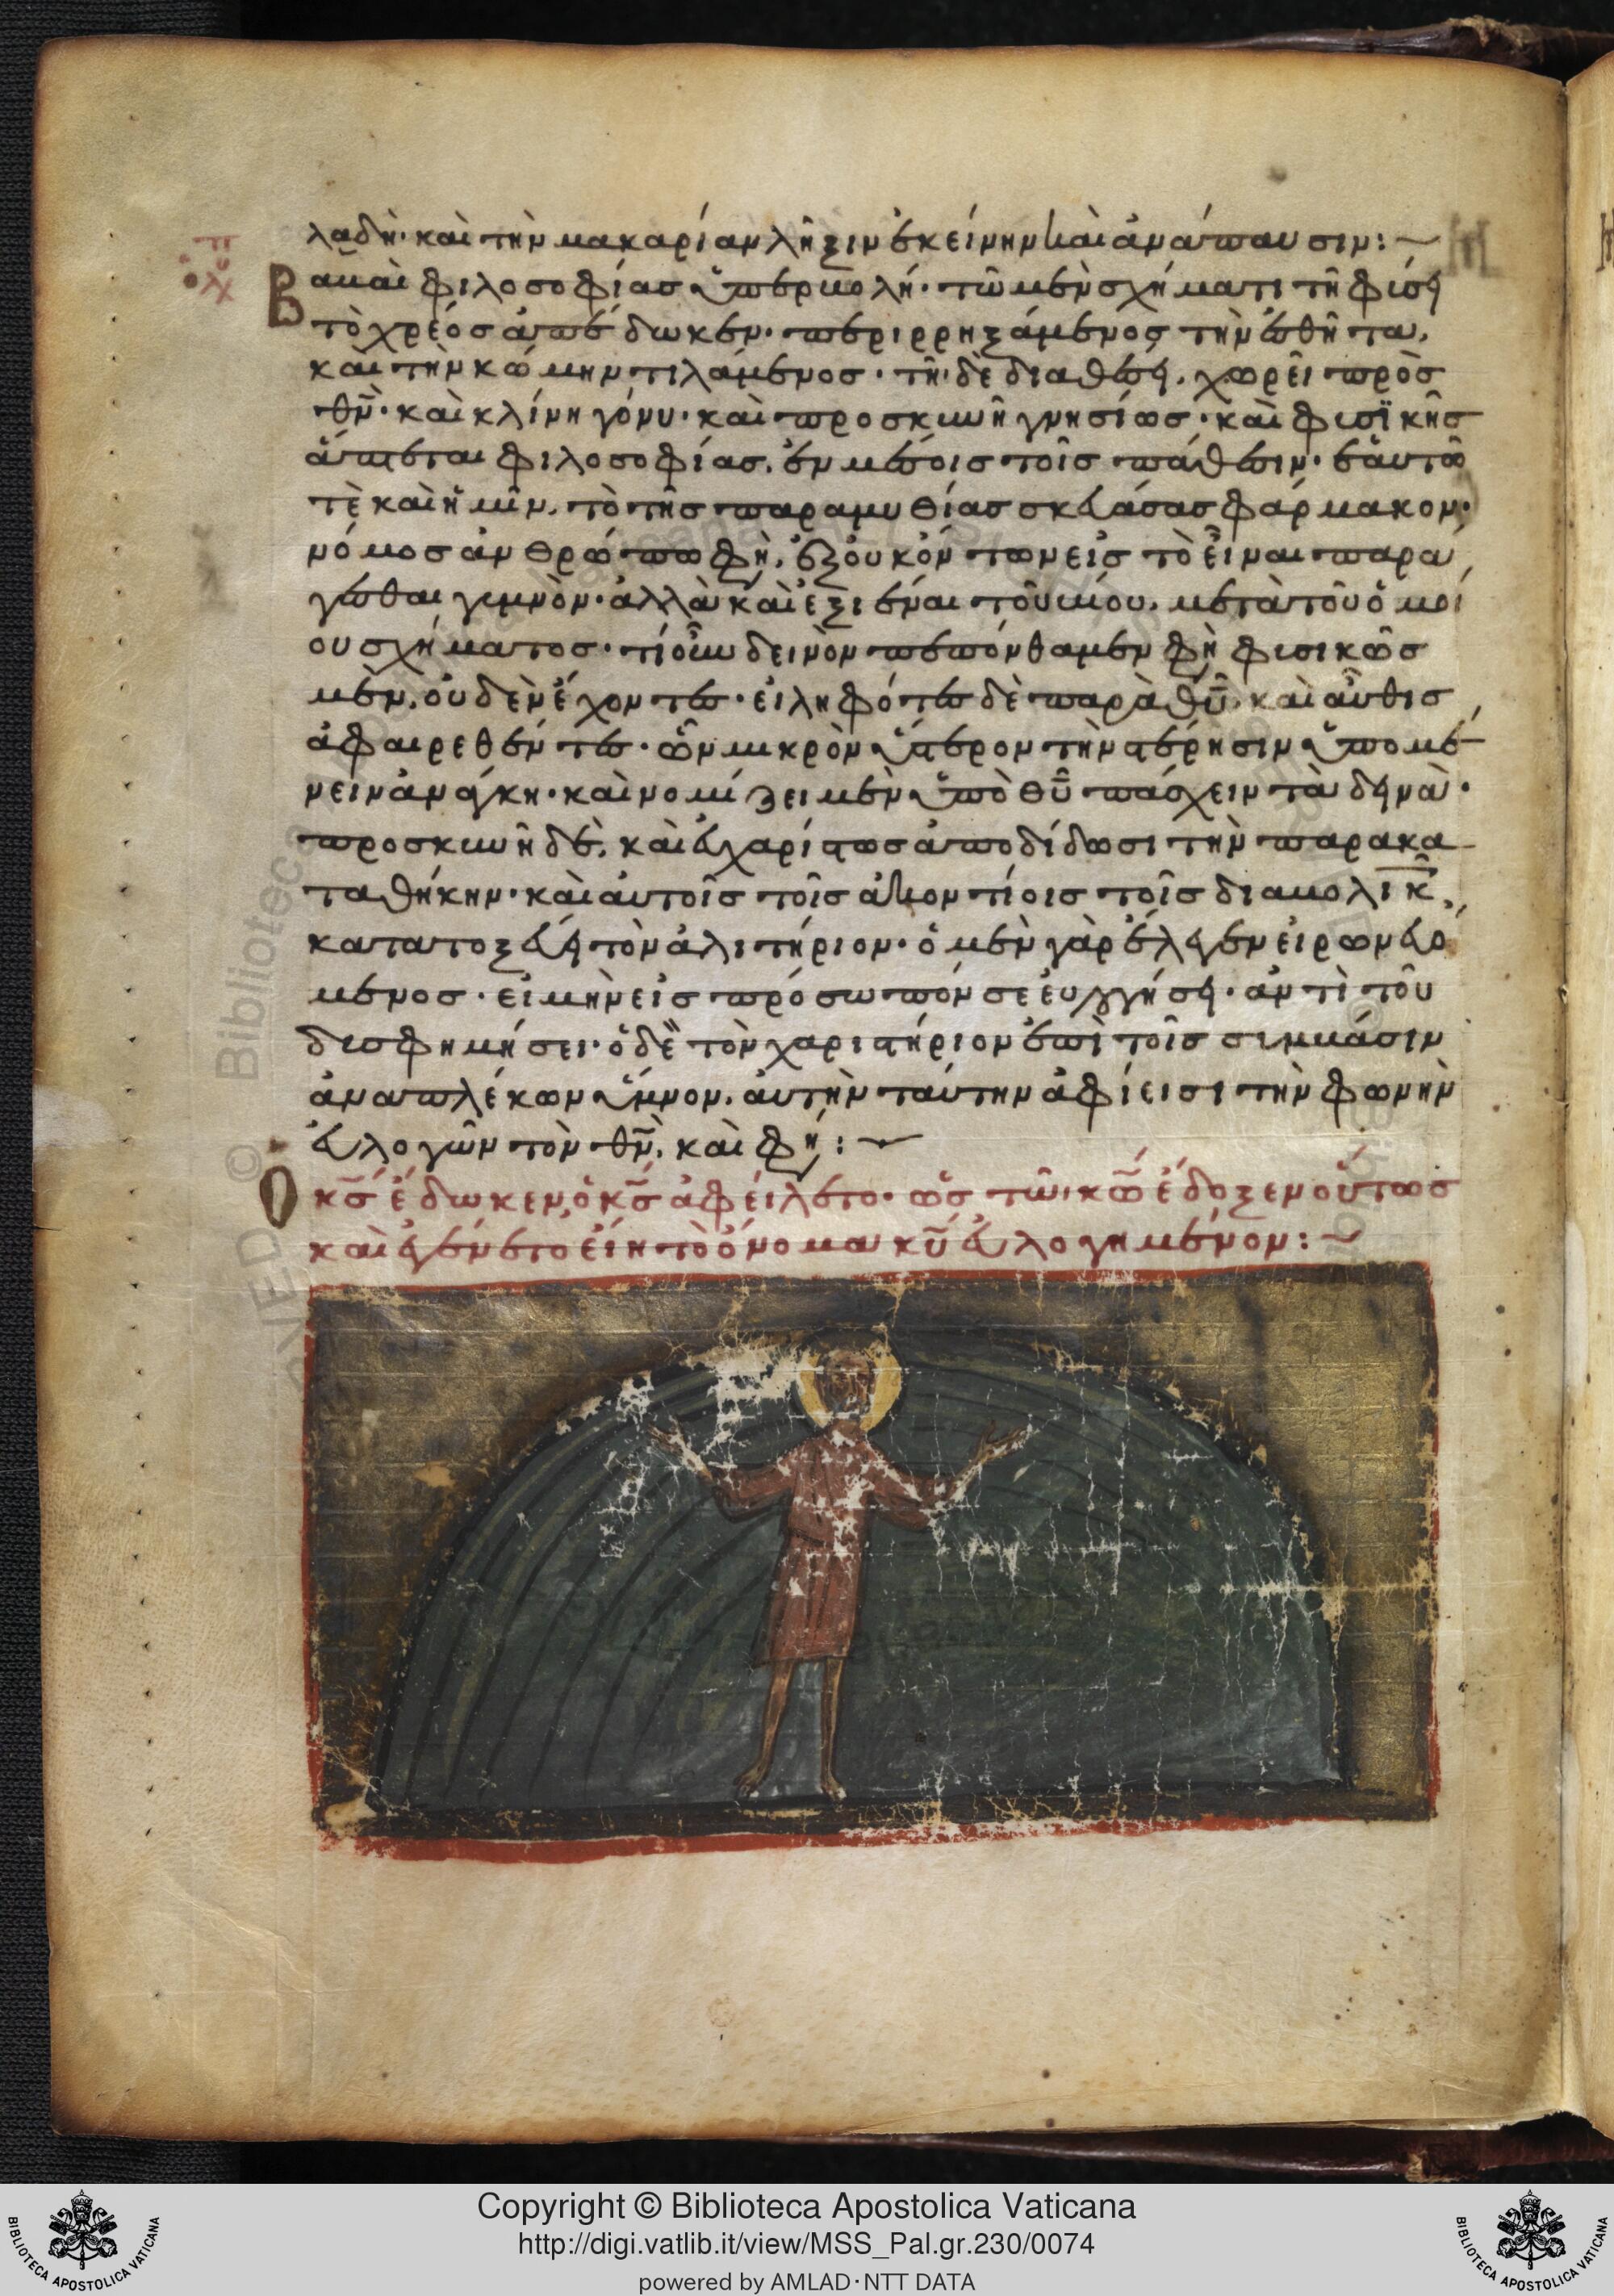 λαδὴ· καὶ τὴν μακαρίαν λῆξιν ἐκείνην καὶ ἀνάπαυσιν:~
Βαβαὶ φιλοσοφίας ὑπερβολή· τῶ μὲν σχήματι τῆ φύσει
τὸ χρέος ἀπέδωκεν· περιρρηξάμενος τὴν ἐσθῆτα,
καὶ τὴν κόμην τιλάμενος· τῆ δὲ διαθέσει, χωρεῖ πρὸς
θν̄· καὶ κλίνει γόνυ· καὶ προσκυνεῖ γνησίως· καὶ φυσϊκῆς
ἅπτεται φιλοσοφίας, ἐν μέσοις τοῖς πάθεσιν· ἑαυτῶ
τὲ καὶ ἡμῖν, τὸ τῆς παραμυθίας σκευάσας φάρμακον·
νόμος ἀνθρώπω φη, ἐξ οὐκ ὄντων εἰς τὸ εἶναι παρα
γεσθαι γυμνὸν· ἀλλὰ καὶ ἐξιέναι τοῦ βίου, μετὰ τοῦ ὁμοί
ου σχήματος· τί οὖν δεινὸν πεπόνθαμεν φη φυσικῶς
μὲν, οὐδὲν ἔχοντες· εἰληφότες δὲ παρὰ θῡ, καὶ αὖθις
ἀφαιρεθέντες· ὧν μικρὸν ὕστερον τὴν στέρησιν ὑπομέ
νειν ἀνάγκη· καὶ νομίζει μὲν ὑπὸ θῡ πάσχειν τὰ δεινὰ·
προσκυνεῖ δὲ, καὶ εὐχαρίστως ἀποδίδωσι τὴν παρακα
ταθήκην· καὶ αὐτοῖς τοῖς ἀκοντίοις τοῖς διαβολικ
κατατοξεύει τὸν ἀλιτήριον· ὁ μὲν γὰρ ἔλεγεν εἰρωνευό
μενος· εἰ μὴν εἰς πρόσωπόν σε εὐλογήσει· ἀντὶ τοῦ
δυσφημήσει· ὁ δὲ τὸν χαριστήριον ἐπὶ τοῖς συμβάσιν
ἀναπλέκων ὕμνον, αὐτὴν ταύτην ἀφίεισι τὴν φωνὴν
εὐλογῶν τὸν θν̄, καὶ φη:~
Ὁ κς̄ ἔδωκεν, ὁ κς̄ ἀφείλετο· ὡς τῶ κω̄ ἔδοξεν οὕτως
καὶ ἐγένετο εἴη τὸ ὄνομα κῡ εὐλογημένον:~
Copyright © Biblioteca Apostolica Vaticana
http://digi.vatlib.it/view/MSS_Pal.gr.230/0074
powered by AMLAD·NTT DATA
BIBLIOTECA APOSTOLICA VATICANA
BIBLIOTECA APOSTOLICA VATICANA